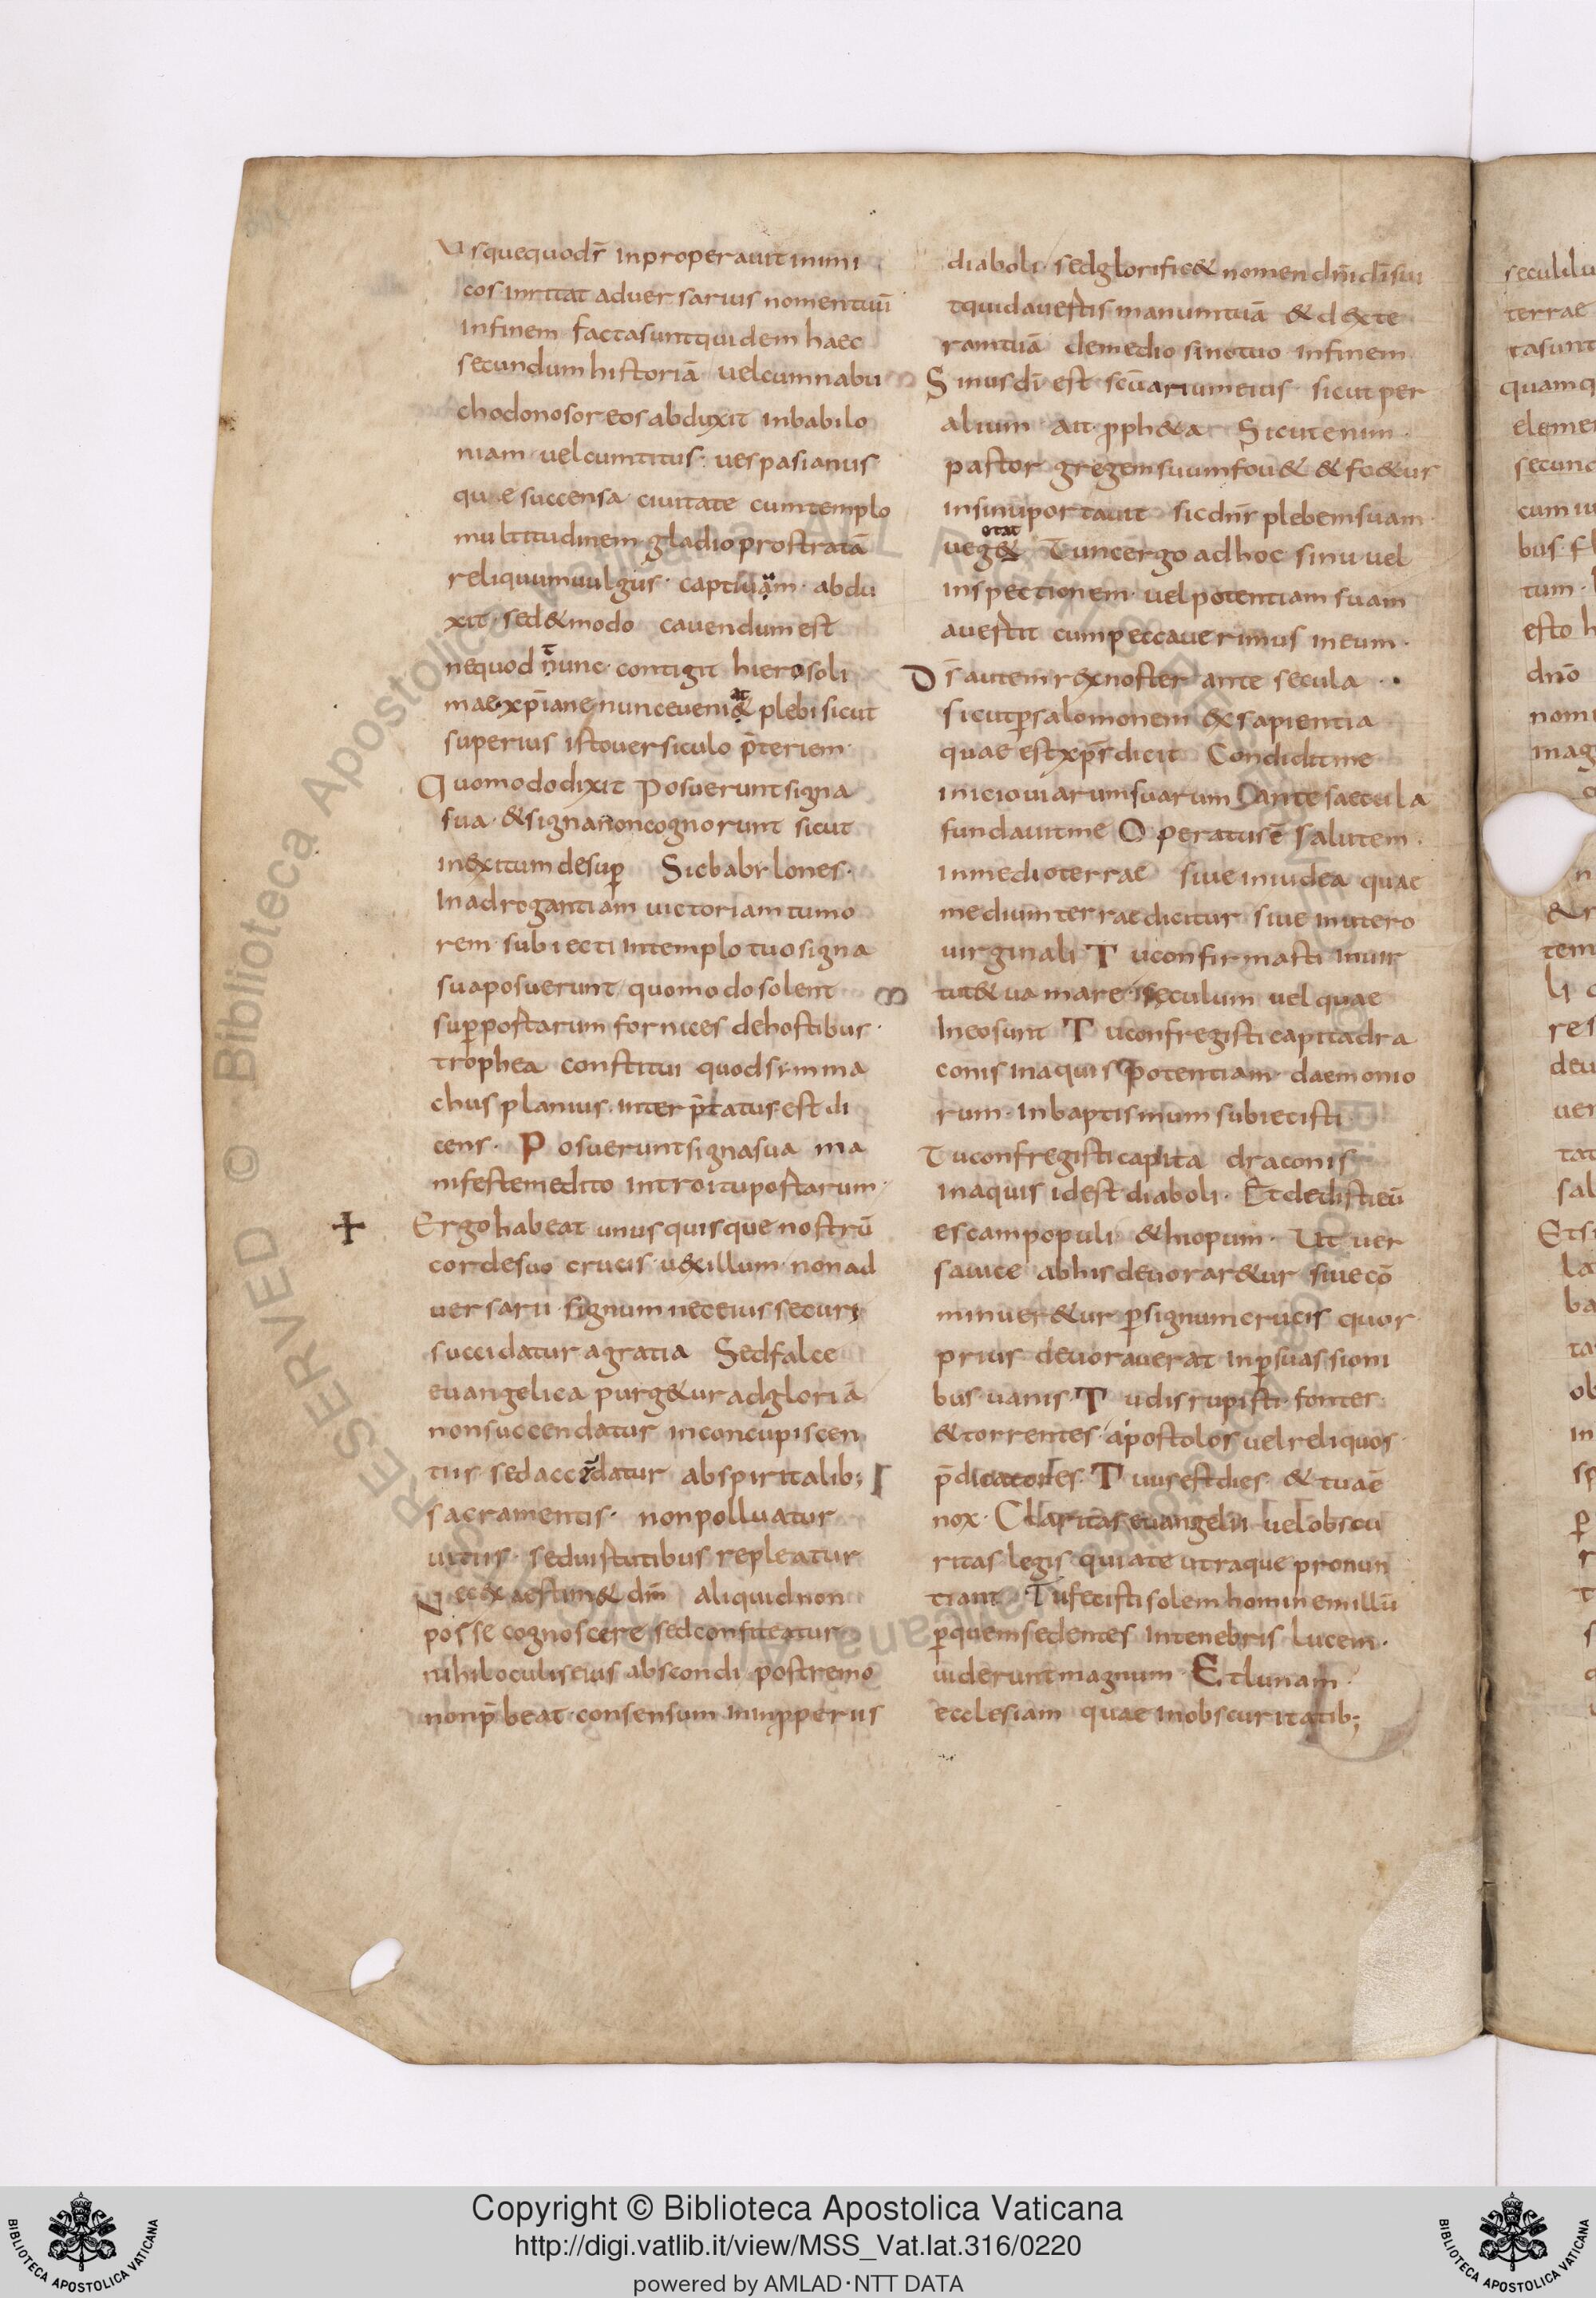 Usquequo dr̄ inproperauit inimi
cos inritat aduersarius nomen tuū
infinem facta sunt quidem haec
secundum historiā uel cum nabu
chodonosor eos abduxit inbabilo
niam uel cum titus uespasianus
quae succensa ciuitate cum templo
multitudinem gladio prostratā
reliquum uulgus captiuam abdu
xit sed & modo cauendum est
nequod nunc contigit hierosoli
mae xp̄iane nunc eueni& plebi sicut
superius isto uersiculo p̄teriem
Quomodo dixit Posuerunt signa
sua & signa non cognorunt sicut
inexitum desuꝑ Sic babilones
In adrogantiam uictoriam tumo
rem subiecti intemplo tuo signa
sua posuerunt quomodo solent
suꝑ portarum fornices dehostibus
trophea constitui quod simma
chus planius interp̄tatus est di
cens Posuerunt signa sua ma
nifeste medito introitu portarum
Ergo habeat unusquisque nostrū
corde suo crucis uexillum non ad
uersarii signum nec eius securi
succidatur agratia Sed falce
euangelica purg&ur adgloriā
non succendatur inconcupiscen
tiis sed accedatur ab spiritalib;
sacramentis non polluatur
uitiis sed uirtutibus repleatur
Nec & aestim& dn̄m aliquid non
posse cognoscere sed confiteatur
nihil oculis eius abscondi postremo
non p̄beat consensum inproperiis
diaboli sed glorific& nomen dn̄i dī sui
tquid auertis manum tuā & dexte
ram tuā de medio sinu tuo infinem
Sinus dī est secretarium eius sicut per
alium ait proph&a Sicut enim
pastor gregem suum fou& & fo&us
insinu portauit sic dn̄r plebem suam
ueg& otat Tunc ergo ad hoc sinu uel
inspectionem uel potentiam suam
auertit cum peccauerimus in eum
Ds̄ autem rex noster ante secula
sicut ꝑ salomonem ex sapientia
quae est xp̄s dicit Condidit me
inicio uiarum suarum ante saecula
fundauit me Operatus ē salutem
in medio terrae siue in iudea quae
medium terrae dicitur siue in utero
uirginali Tu confirmasti in uir
tut& ua mare seculum uel quae
In eo sunt Tu confregisti capita dra
conis in aquis potentiam daemonio
rum In baptismum subiecisti
Tu confregisti capita draconis
in aquis id est diaboli Et dedisti eū
escam populi &hiopum Ut uer
sa uice ab his deuorar&ur siue cō
minuer&ur ꝑ signum crucis quor
prius deuorauerat in ꝑsuassioni
bus uanis Tu disrupisti fontes
& torrentes apostolos uel reliquos
p̄dicatores Tuus est dies & tua ē
nox Claritas euangelii uel obscu
ritas legis quia te utraque pronun
tiant Tu fecisti solem hominem illū
ꝑ quem sedentes In tenebris lucem
uiderunt magnum Et lunam
ecclesiam quae in obscuritatib;
Copyright © Biblioteca Apostolica Vaticana
http://digi.vatlib.it/view/MSS_Vat.lat.316/0220
powered by AMLAD·NTT DATA